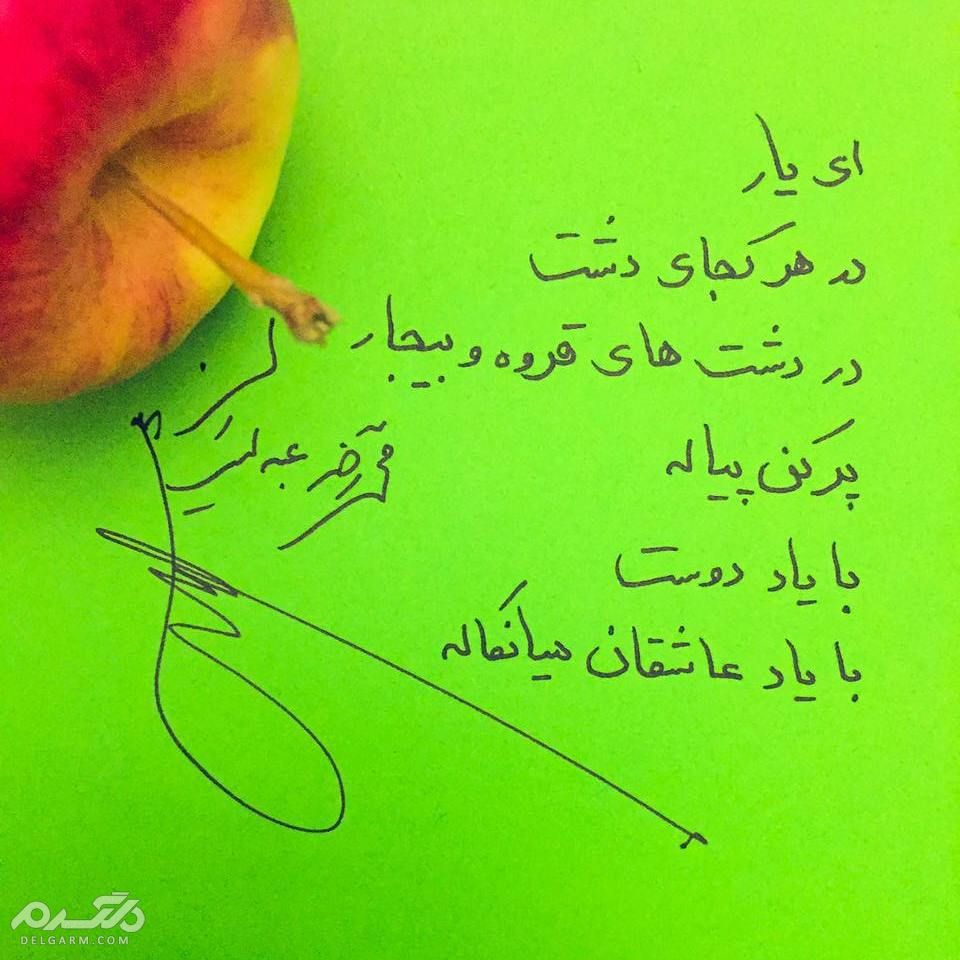 ای یار
در هر کجای دشت
در دشت های قروه و بیجار
پر کن پیاله
با یاد دوست
با یاد عاشقان سیانکاله
دلگرم
DELGARM.COM